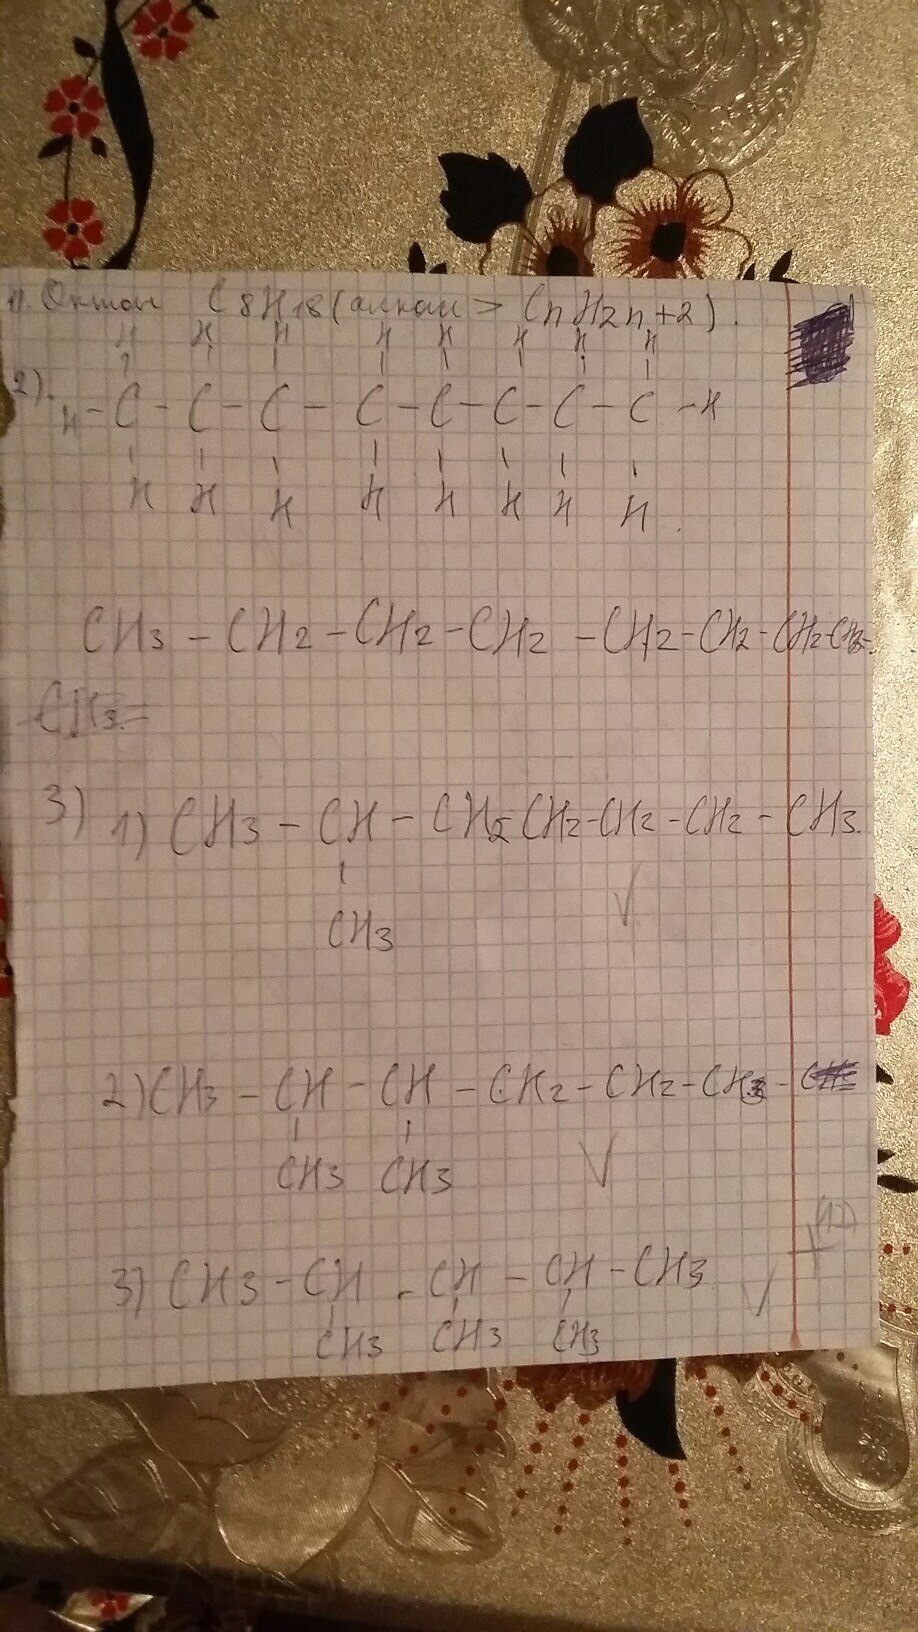 1. Октан C8H18 (алкан > CnH2n+2).
H H H H H H H H
2). H - C - C - C - C - C - C - C - C - H
H H H H H H H H.
CH3 - CH2 - CH2 - CH2 - CH2 - CH2 - CH2 - CH3.
CH3
3) 1) CH3 - CH - CH2 CH2 - CH2 - CH2 - CH3.
CH3
2) CH3 - CH - CH - CH2 - CH2 - CH3 -
CH3 CH3
3) CH3 - CH - CH - CH - CH3
CH3 CH3 CH3